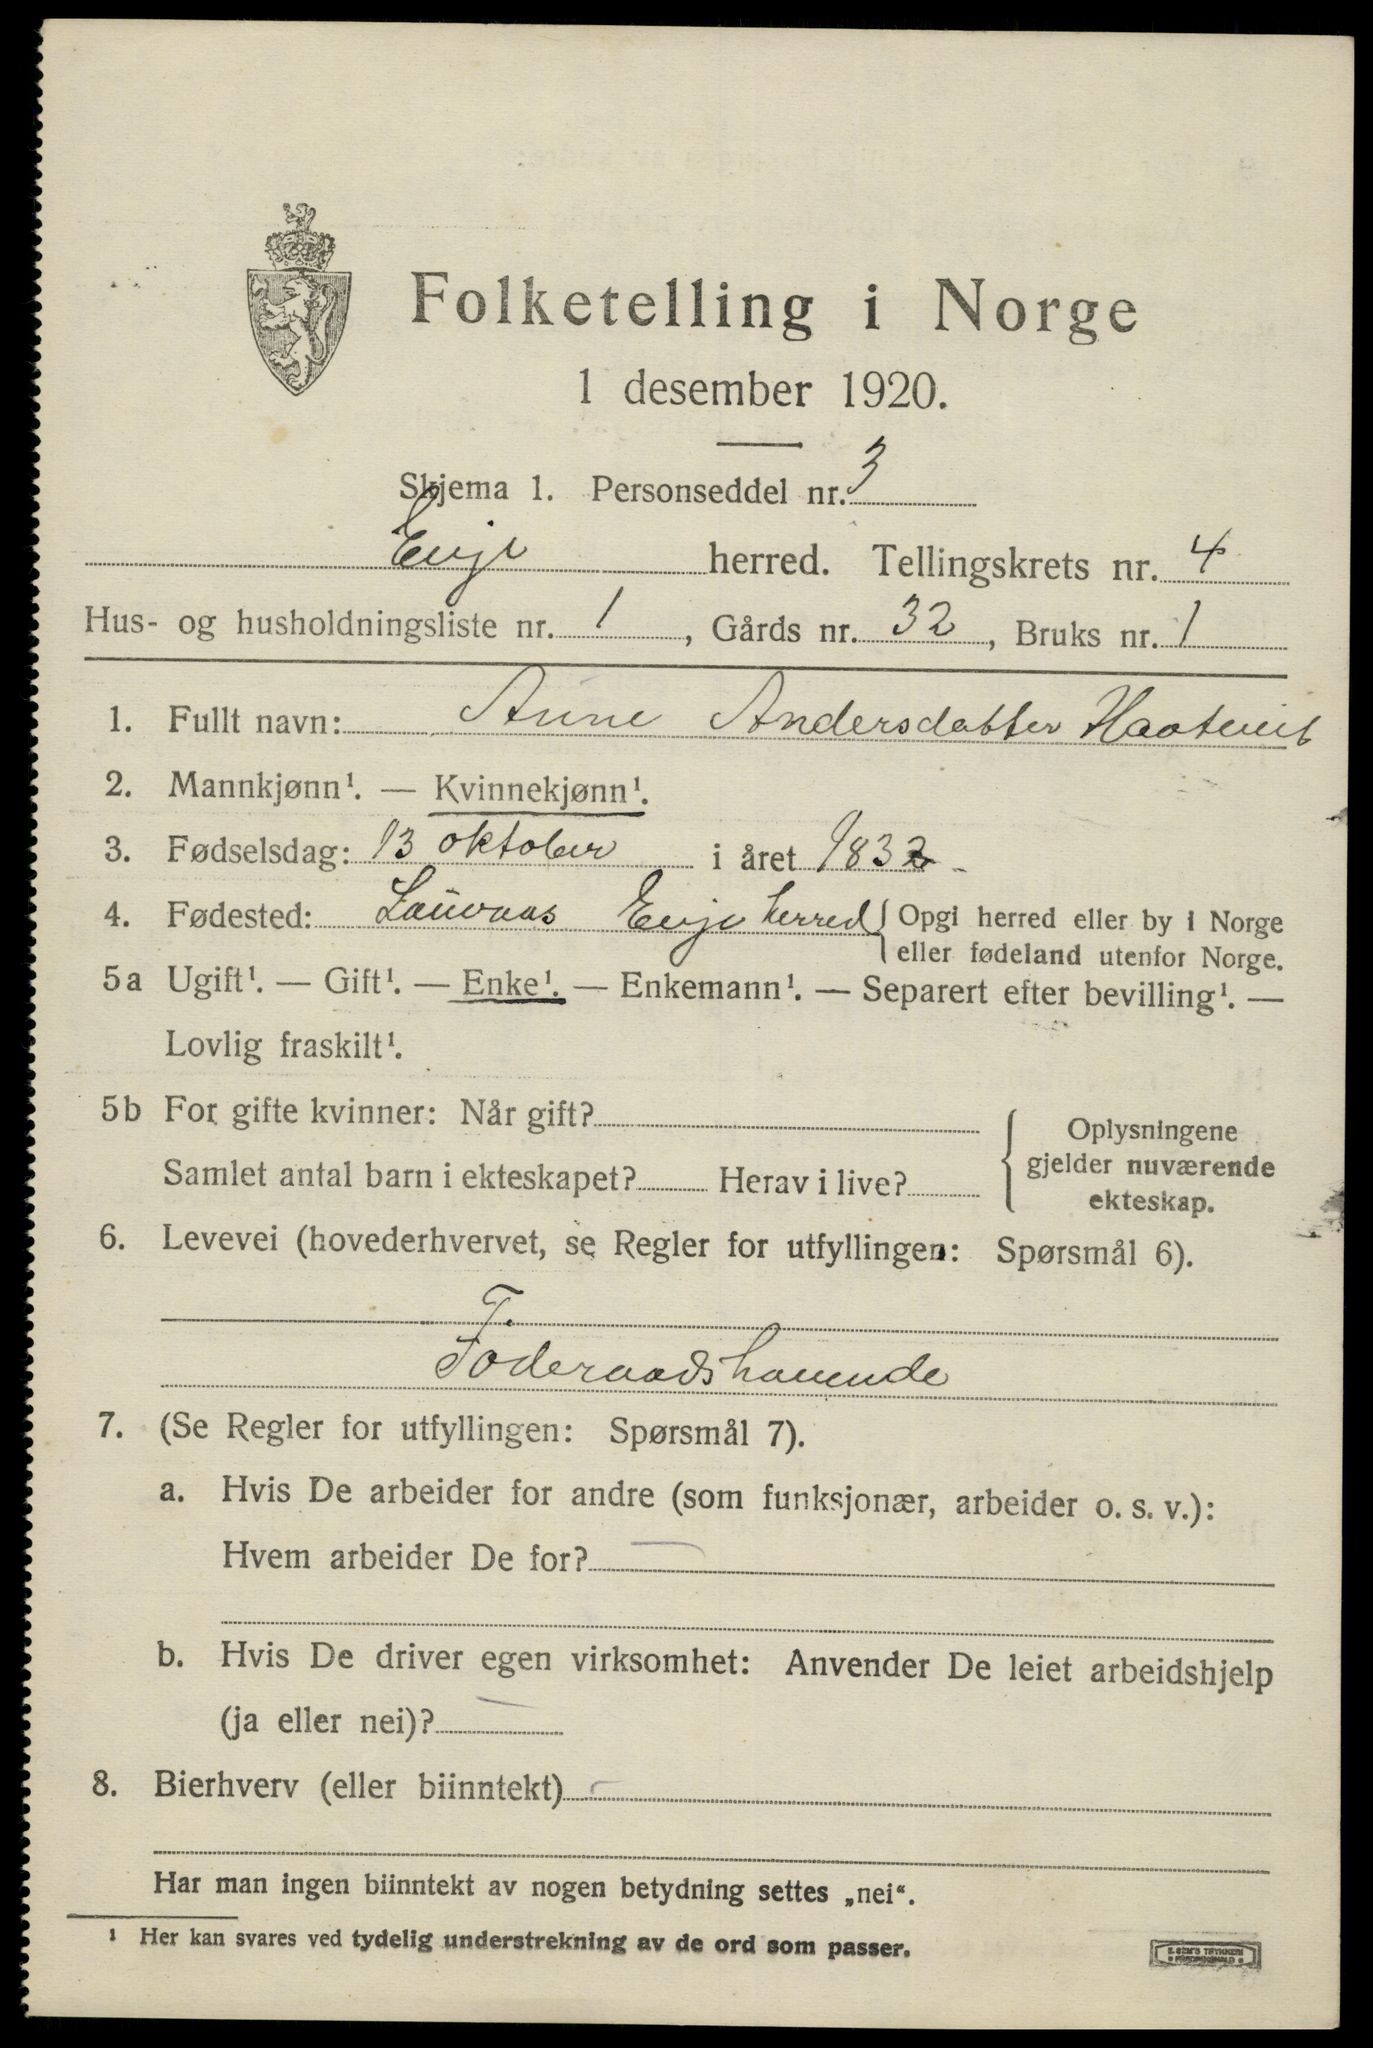 Folketelling i Norge
1 desember 1920.
Skjema 1. Personseddel nr. 3
Evje herred. Tellingskrets nr. 4
Hus- og husholdningsliste nr. 1, Gårds nr. 32, Bruks nr. 1
1. Fullt navn: Anne Andersdatter Haatveit
2. Mannkjønn¹. — Kvinnekjønn¹.
3. Fødselsdag: 13 oktober i året 1832
4. Fødested: Lauvaas Evje herred { Opgi herred eller by i Norge
eller fødeland utenfor Norge.
5a Ugift¹. — Gift¹. — Enke¹. — Enkemann¹. — Separert efter bevilling¹. —
Lovlig fraskilt¹.
5b For gifte kvinner: Når gift?
Samlet antal barn i ekteskapet? Herav i live?
{ Oplysningene
gjelder nuværende
ekteskap.
6. Levevei (hovederhvervet, se Regler for utfyllingen: Spørsmål 6).
F.
Foderaadshavende
7. (Se Regler for utfyllingen: Spørsmål 7).
a. Hvis De arbeider for andre (som funksjonær, arbeider o. s. v.):
Hvem arbeider De for? —
b. Hvis De driver egen virksomhet: Anvender De leiet arbeidshjelp
(ja eller nei)? —
8. Bierhverv (eller biinntekt) -
Har man ingen biinntekt av nogen betydning settes „nei".
¹ Her kan svares ved tydelig understrekning av de ord som passer.